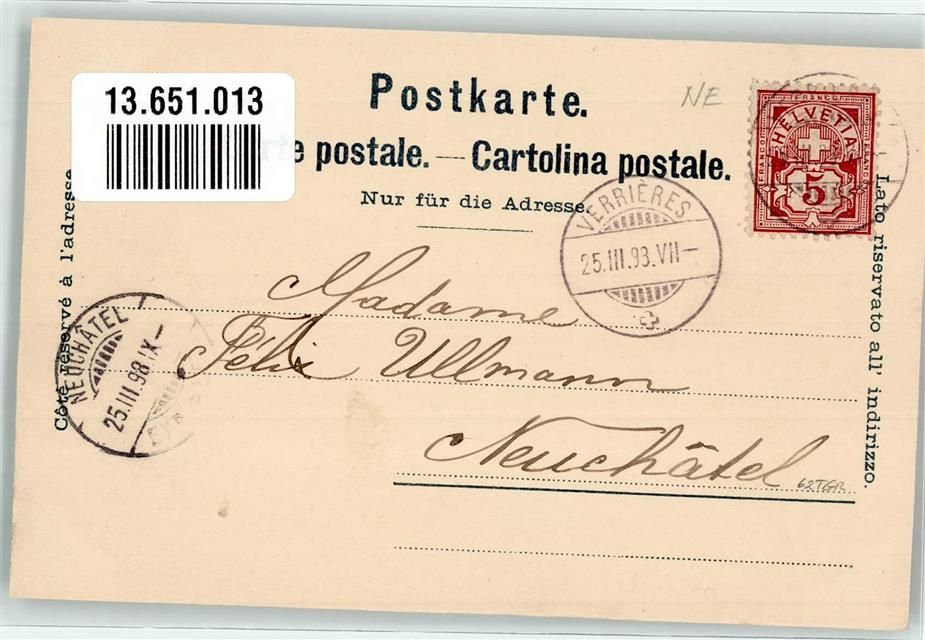 13.651.013
Postkarte.
NE
e postale. — Cartolina postale.
Nur für die Adresse.
FRANCO
HELVETIA
FRANCO
FRANCO
5
VERRIÈRES
25.III.98.VII–
Côté réservé à l'adresse
Lato riservato all' indirizzo.
NEUCHÂTEL
25.III.98.IX–
Madame
Félix Ullmann
Neuchâtel
62TGR